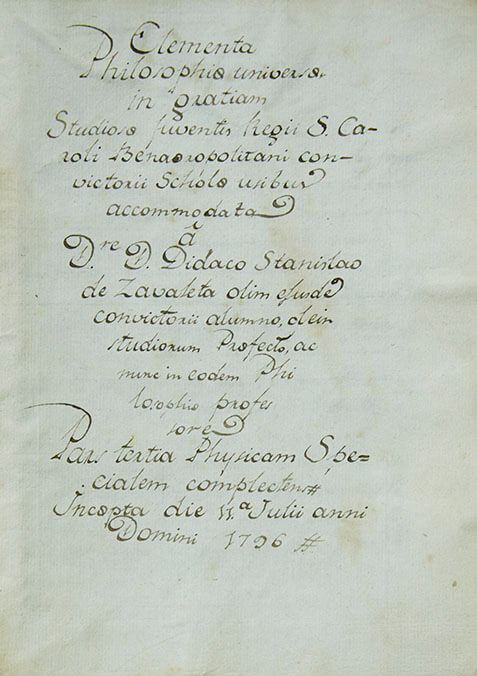 Elementa
Philosophiæ universæ
in gratiam
Studiosæ Juventis Regii S. Ca-
roli Bonaeropolitani con-
victorii Scholæ usibus
accommodata
á
D.re D. Didaco Stanislao
de Zavaleta olim ejusdē
convictorii alumno, dein
studiorum Præfecto, ac
nunc in eodem Phi
losophiæ profes
sore
Pars tertia Physicam Spe=
cialem complectens
Incæpta die 11.a Julii anni
Domini 1796